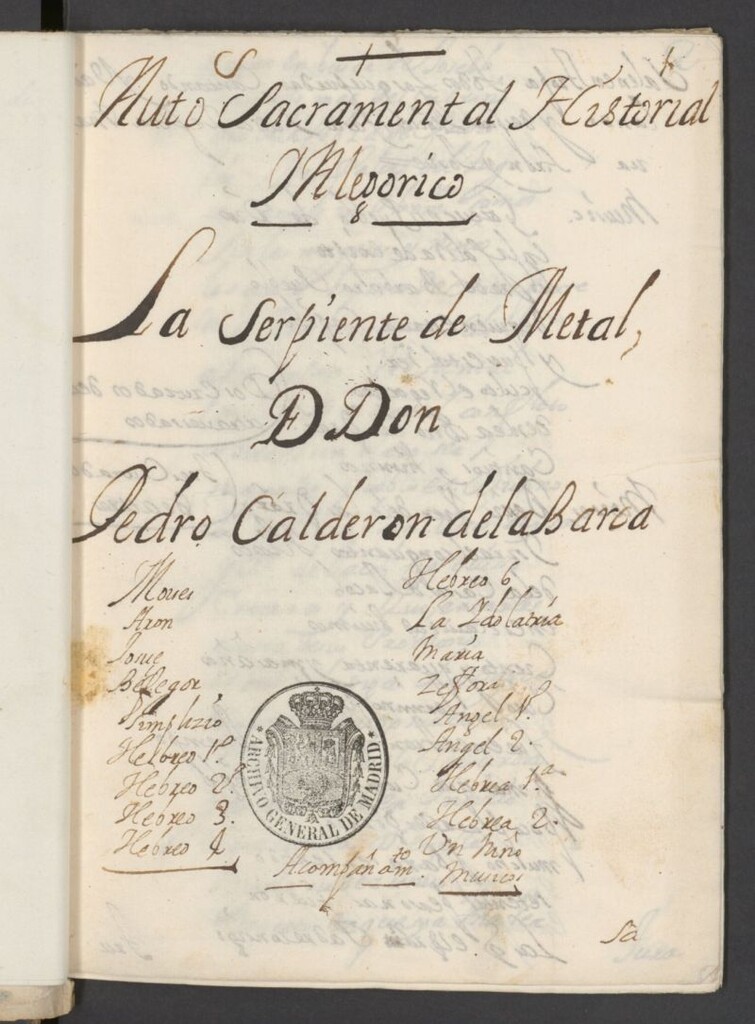 Auto Sacramental Historial
Alegorico
La Serpiente de Metal,
D Don
Pedro Calderon de la Barca
Moises
Aron
Josue
Belfegor
Simplizio
Hebreo 1º
Hebreo 2º
Hebreo 3.
Hebreo 4.
Hebreo 6
La Idolatria
Maria
Zeffora
Angel 1º
Angel 2.
Hebrea 1ª
Hebrea 2.
Un Niño
Musicos
Acompañamto.
ARCHIVO GENERAL DE MADRID